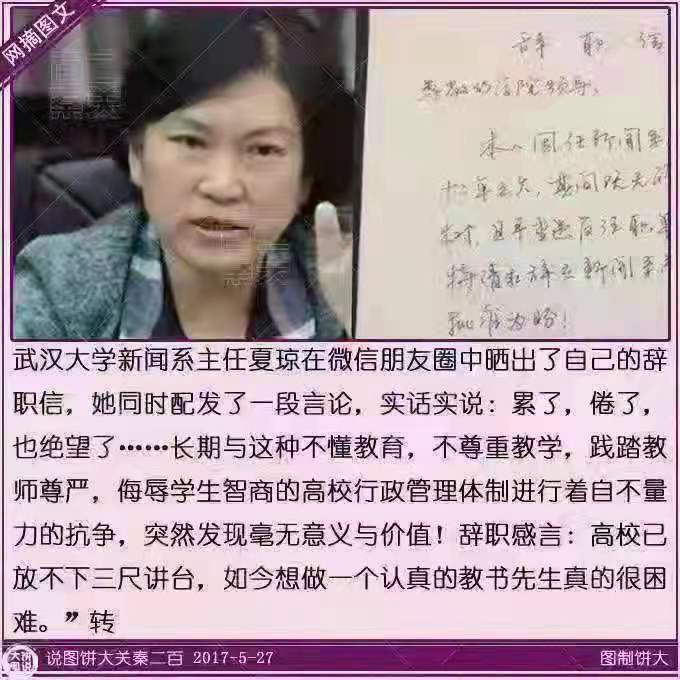 网摘图文
辞职信
尊敬的学院领导:
本人担任新闻系
十二年之久,其间
特请求辞去新闻系主
批准为盼!
武汉大学新闻系主任夏琼在微信朋友圈中晒出了自己的辞
职信,她同时配发了一段言论,实话实说:累了,倦了,
也绝望了……长期与这种不懂教育,不尊重教学,践踏教
师尊严,侮辱学生智商的高校行政管理体制进行着自不量
力的抗争,突然发现毫无意义与价值!辞职感言:高校已
放不下三尺讲台,如今想做一个认真的教书先生真的很困
难。”转
说图饼大关秦二百 2017-5-27
图制饼大